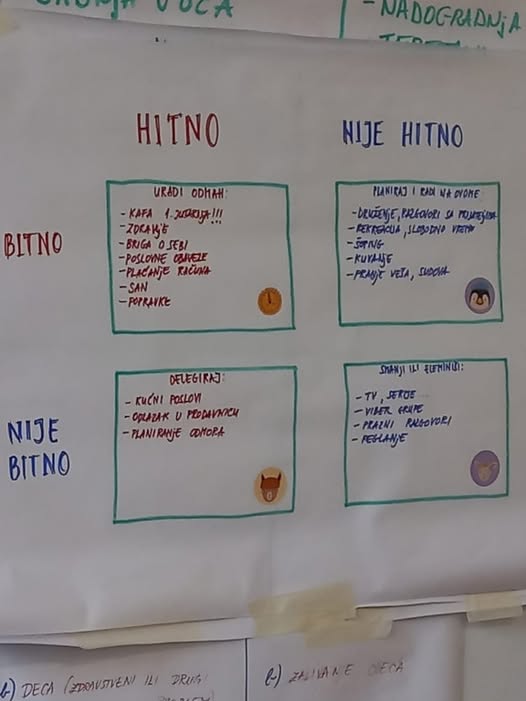 VOĆA
- NADOGRADNJA
HITNO
NIJE HITNO
BITNO
URADI ODMAH:
- KAFA 1. JUTARNJA!!!
- ZDRAVLJE
- BRIGA O SEBI
- POSLOVNE OBAVEZE
- PLAĆANJE RAČUNA
- SAN
- POPRAVKE
PLANIRAJ I RADI NA OVOME:
- DRUŽENJE, RAZGOVORI SA PRIJATELJIMA
- REKREACIJA, SLOBODNO VREME
- ŠOPING
- KUVANJE
- PRANJE VEŠA, SUDOVA
NIJE
BITNO
DELEGIRAJ:
- KUĆNI POSLOVI
- ODLAZAK U PRODAVNICU
- PLANIRANJE ODMORA
SMANJI ILI ELEMINIŠI:
- TV, SERIJE
- VIBER GRUPE
- PRAZNI RAZGOVORI
- PEGLANJE
b) DECA (ZDRAVSTVENI ILI DRUGI
b) ZALIVANJE CVEĆA